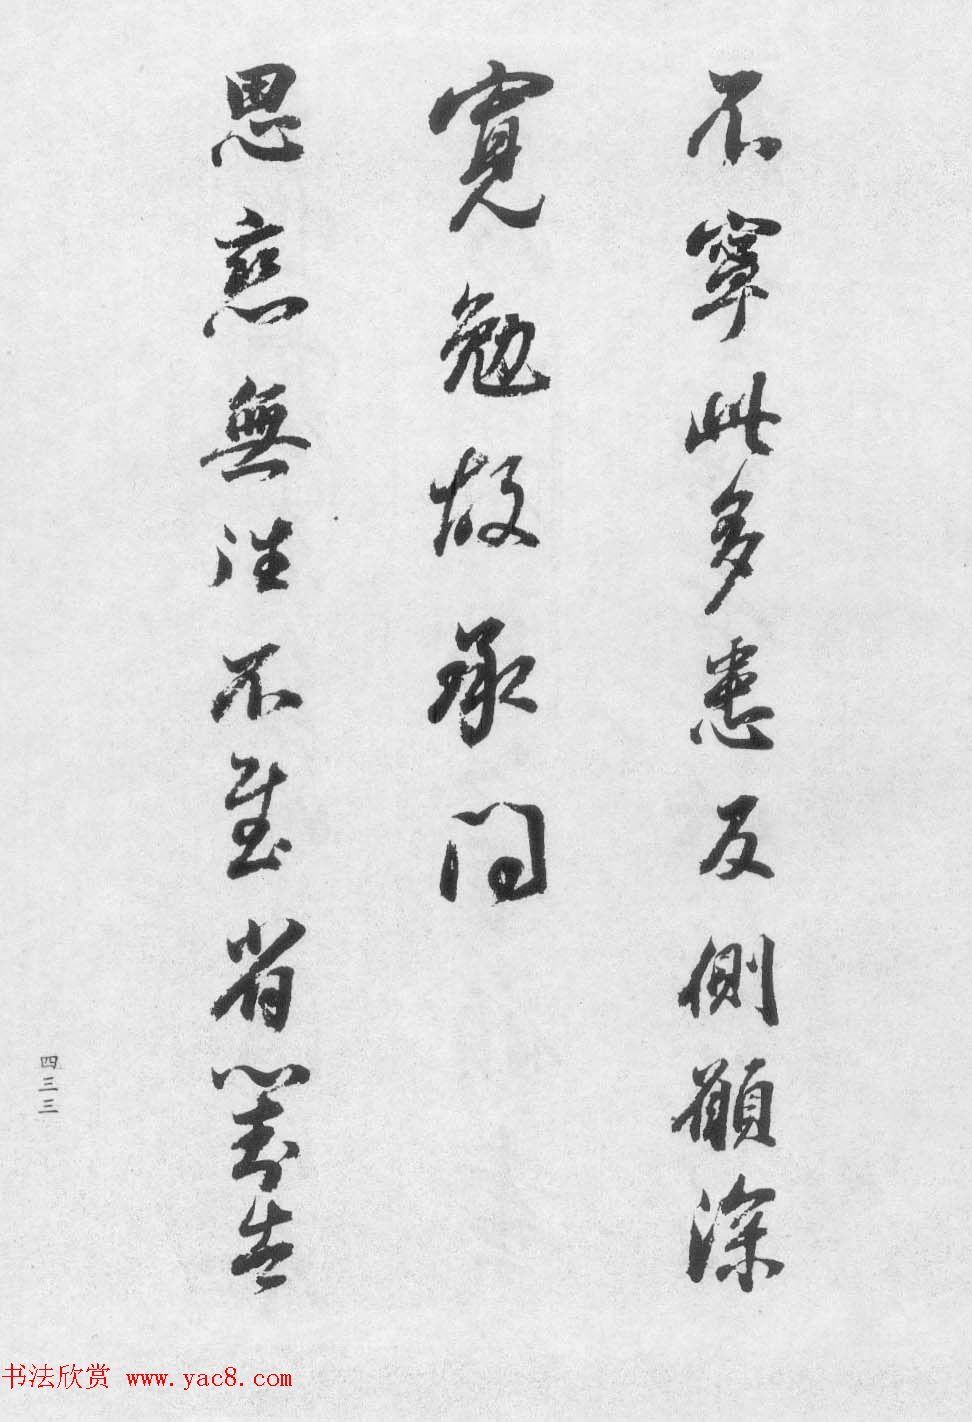 不寧此多患反側願深
寬勉故承問
思戀無往不至省
四三三
书法欣赏 www.yac8.com